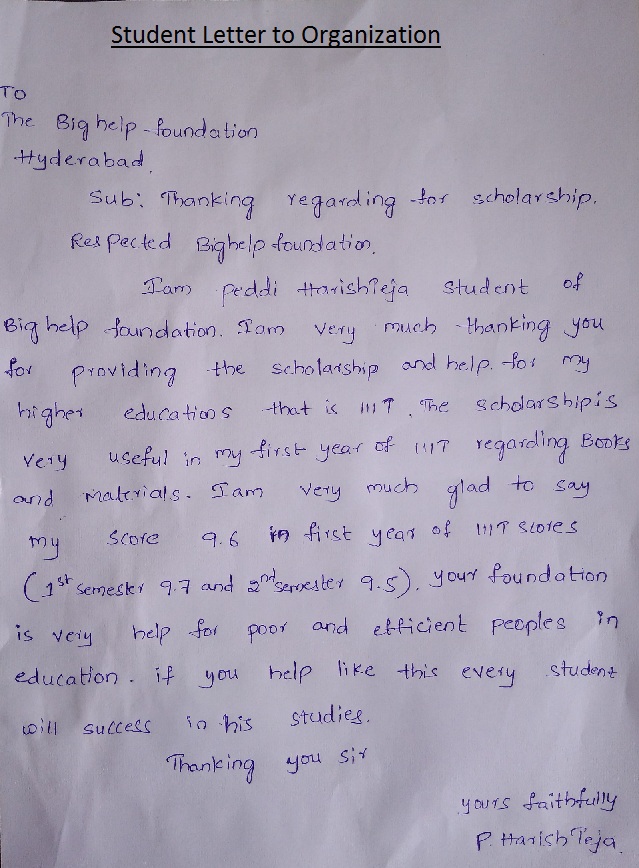 Student Letter to Organization
To
The Big help foundation
Hyderabad.
Sub: Thanking regarding for scholarship.
Respected Big help foundation,
I am peddi HarishTeja student of
Big help foundation. I am very much thanking you
for providing the scholarship and help. for my
higher educations that is IIIT. The scholarship is
very useful in my first year of IIIT regarding Books
and materials. I am very much glad to say
my score 9.6 in first year of IIIT scores
(1st semester 9.7 and 2nd semester 9.5). your foundation
is very help for poor and efficient peoples in
education. if you help like this every student
will success in his studies.
Thanking you sir
yours faithfully
P. Harish Teja.